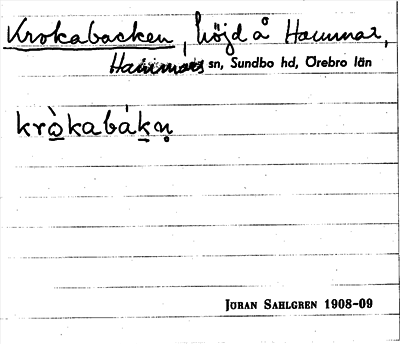 Krokabacken, höjd å Hammar,
Hammars sn, Sundbo hd, Örebro län
krò̲kabák̲ṇ
JÖRAN SAHLGREN 1908-09